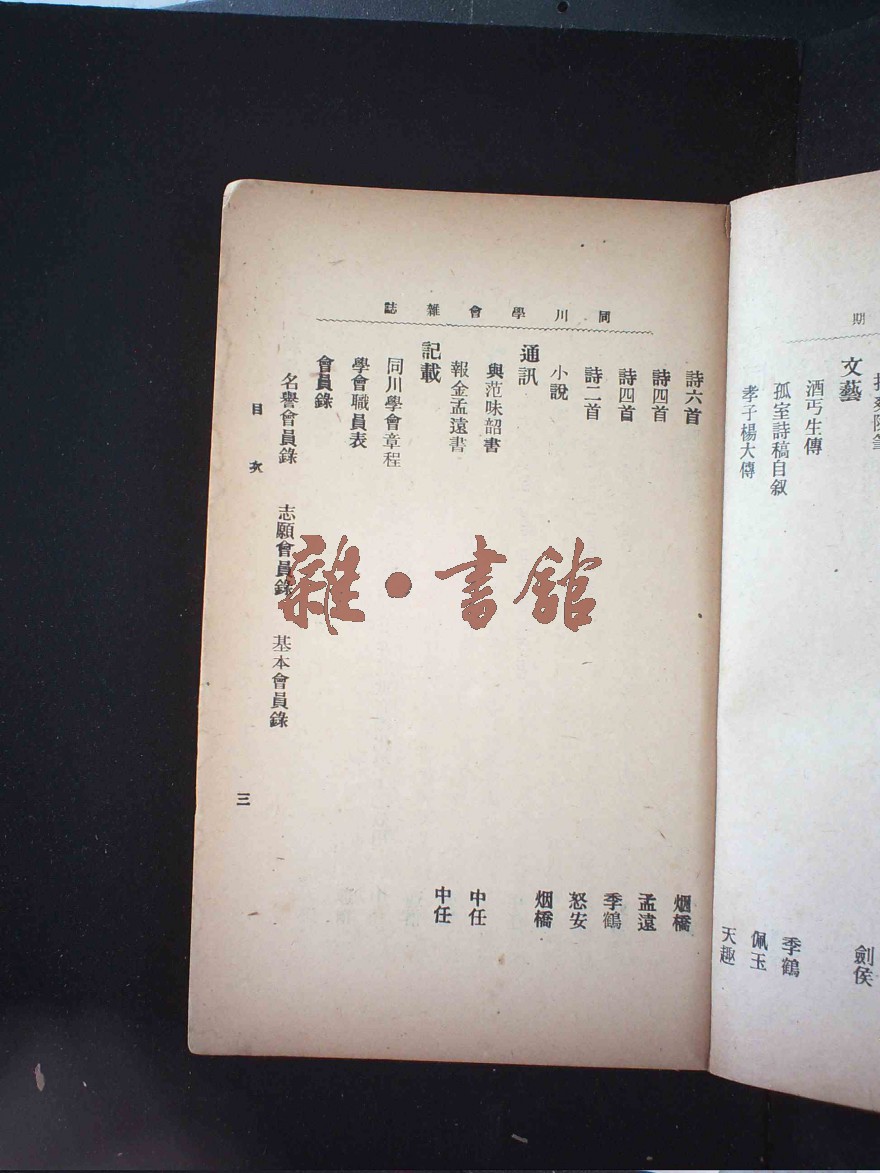 期
劍侯
文藝
酒丐生傳 季鶴
孤室詩稿自叙 佩玉
孝子楊大傳 天趣
同川學會雜誌
詩六首 烟橋
詩四首 孟遠
詩四首 季鶴
詩二首 怒安
小說 烟橋
通訊
與范味韶書 中任
報金孟遠書 中任
記載
同川學會章程
學會職員表
會員錄
名譽會員錄 志願會員錄 基本會員錄
目次 三
雜·書館